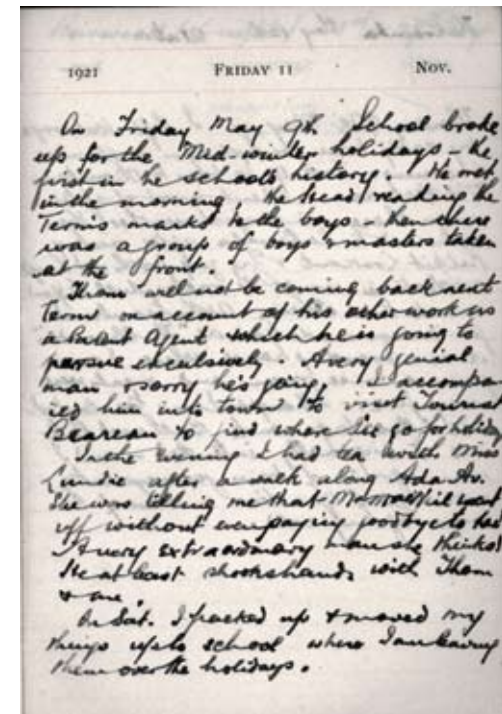 1921 FRIDAY 11 Nov.
On Friday May 9th School broke
up for the Mid-winter holidays - the
first in the school's history. We met
in the morning, the Head reading the
Term's marks to the boys - then there
was a group of boys & masters taken
at the front.
Tham will not be coming back next
term on account of his other work as
a Patent Agent which he is going to
persue exculsively. A very genial
man & sorry he's going. I accompan
ied him into town to visit Tourist
Beareau to find where I'll go for holiday
In the evening I had tea with Miss
Lundie after a walk along Ada Av.
She was telling me that went
off without even saying goodbye to her
A very extraordinary man she thinks!
He at least shook hands with Tham
& me.
On Sat. I packed up & moved my
things up to school where I am leaving
them over the holidays.